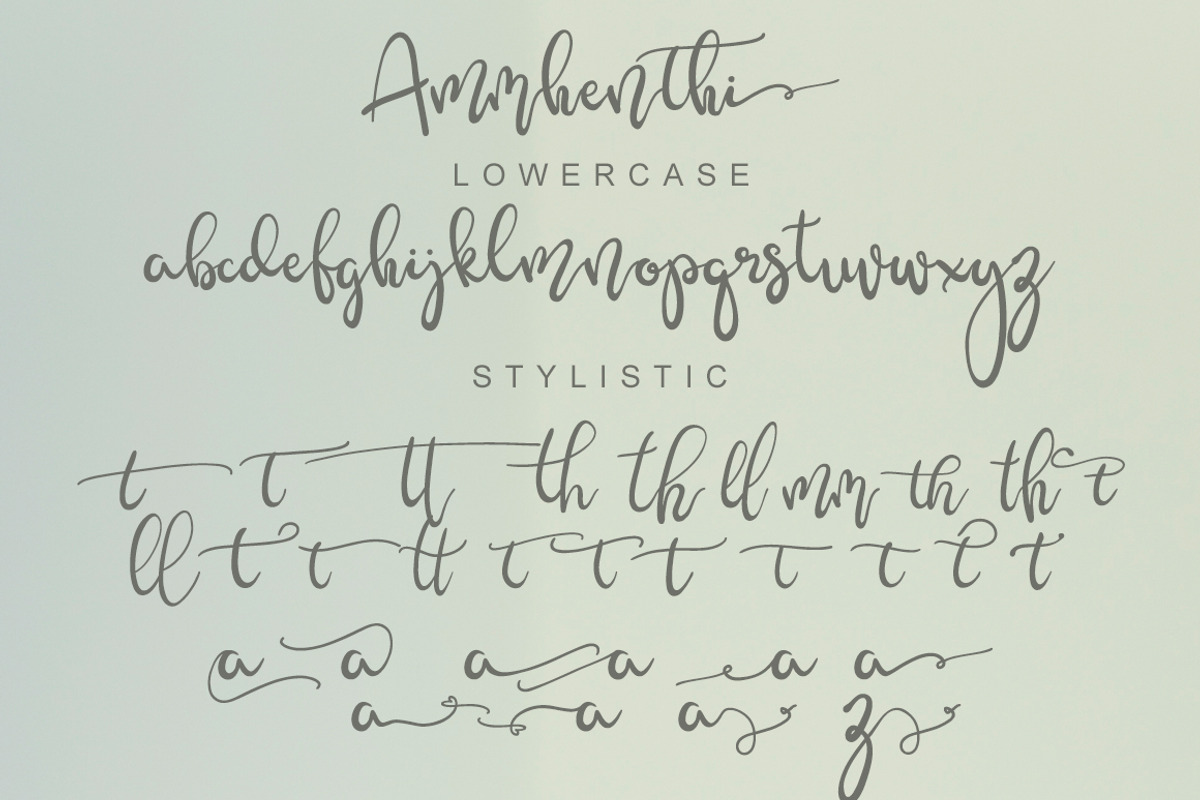 Ammhenthi
LOWERCASE
abcdefghijklmnopqrstuvwxyz
STYLISTIC
t t tt th th ll mm th th t
ll t t tt t t t t t t t
a a a a a a
a a a z